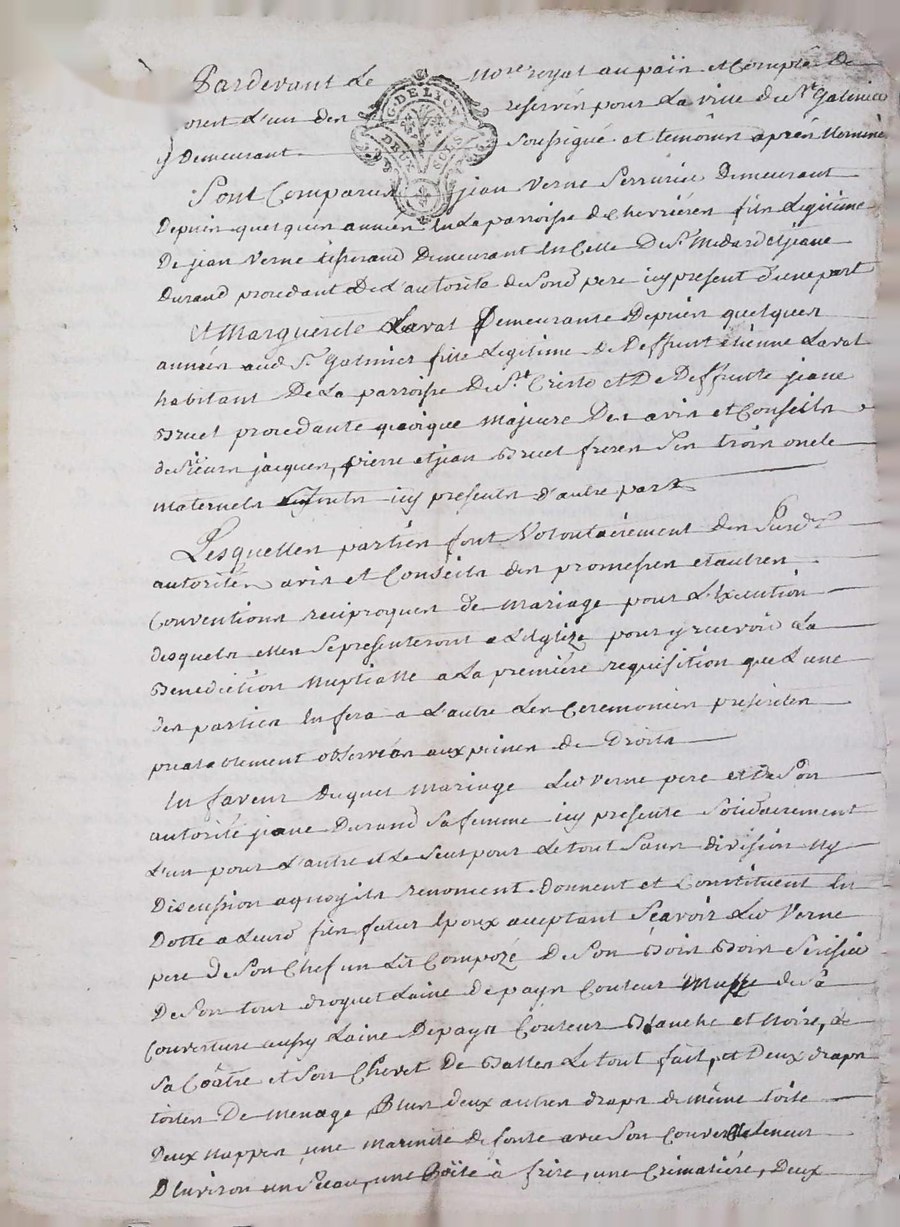 Pardevant Le Nore royal au pain et Compté de
forest L'un des reservés pour La ville de St Galmier
y Demeurant soussigné et témoins après Nommés
G. DE LYON
DEUX SOLS
Sont Comparus jean Verne Serrurier Demeurant
Depuis quelques années En La parroisse de Chevriéres fils Legitime
De jean Verne tisserand Demeurant En Celle De St Medard et jeane
Durand procedant De L'autorité de Sond. pere icy present d'une part
Et Marguerite Laval Demeurante Depuis quelques
années aud. St Galmier fille Legitime De Deffunt étienne Laval
habitant De La parroisse De St Cristo et De Deffunte jeane
Bruel procedante quoique Majeure Des avis et Conseils
de Sieurs jacques, pierre et jean Bruel freres Ses trois oncle
maternels icy presents d'autre part
Lesquelles parties font Volontairement des Susd.
autorités avis et Conseils des promesses et autres
Conventions reciproques de Mariage pour L'Execution
desquels elles Se presenteront a L'Eglize pour y recevoir La
Benediction Nuptialle a La premiére requisition que L'une
des parties En fera a L'autre Les Ceremonies
prealablement observées aux peines de Droits
En faveur Duquel Mariage Led. Verne pere et De Son
autorité jeane Durand Sa femme icy presente Solidairement
L'un pour L'autre et Le Seul pour Le tout Sans division Ny
Discussion a quoy ils renoncent donnent et Constituent En
Dotte a Leurd. fils futur Epoux acceptant Scavoir Led. Verne
pere de Son Chef un Lit Compozé De Son Bois Bois Serisier
De Son tour droguet Laine depays Couleur de Sa
Couverture aussy Laine Depays Couleur Blanche et Noire, de
Sa Coätre et Son Chevet De Balles Le tout fait, et Deux draps
toiles De Menage Plus deux autres draps de même toile
Deux Nappes, une Marmite de fonte avec Son Couvercle teneur
D'Environ un Seau, une Poële à frire, une Crimaliére, Deux